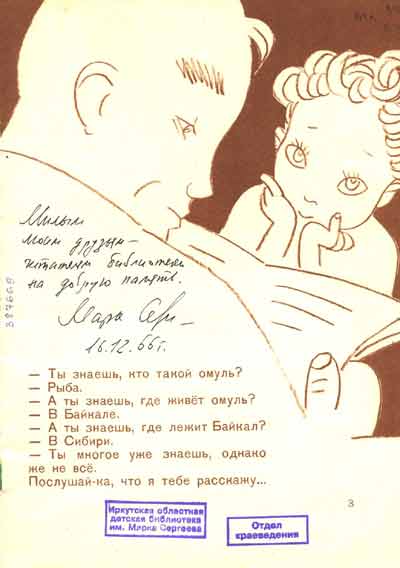 Милым
моим друзьям –
читателям библиотеки
на добрую память.
Марк Сер–
16.12.66 г.
387669
— Ты знаешь, кто такой омуль?
— Рыба.
— А ты знаешь, где живёт омуль?
— В Байкале.
— А ты знаешь, где лежит Байкал?
— В Сибири.
— Ты многое уже знаешь, однако
же не всё.
Послушай-ка, что я тебе расскажу...
3
Иркутская областная
детская библиотека
им. Марка Сергеева
Отдел
краеведения